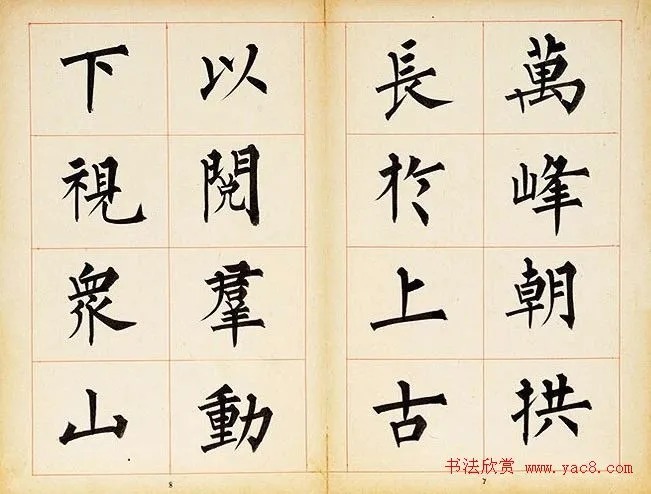 萬峰朝拱
長於上古
以閱羣動
下視衆山
8
7
书法欣赏 www.yac8.com